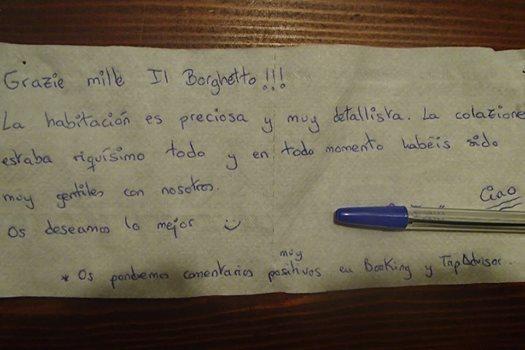 Grazie mille Il Borghetto!!!
La habitación es preciosa y muy detallista. La colazione
estaba riquísimo todo y en todo momento habéis sido
muy gentiles con nosotros.
Ciao
Os deseamos lo mejor
* Os pondremos comentarios muy positivos en Booking y TripAdvisor.